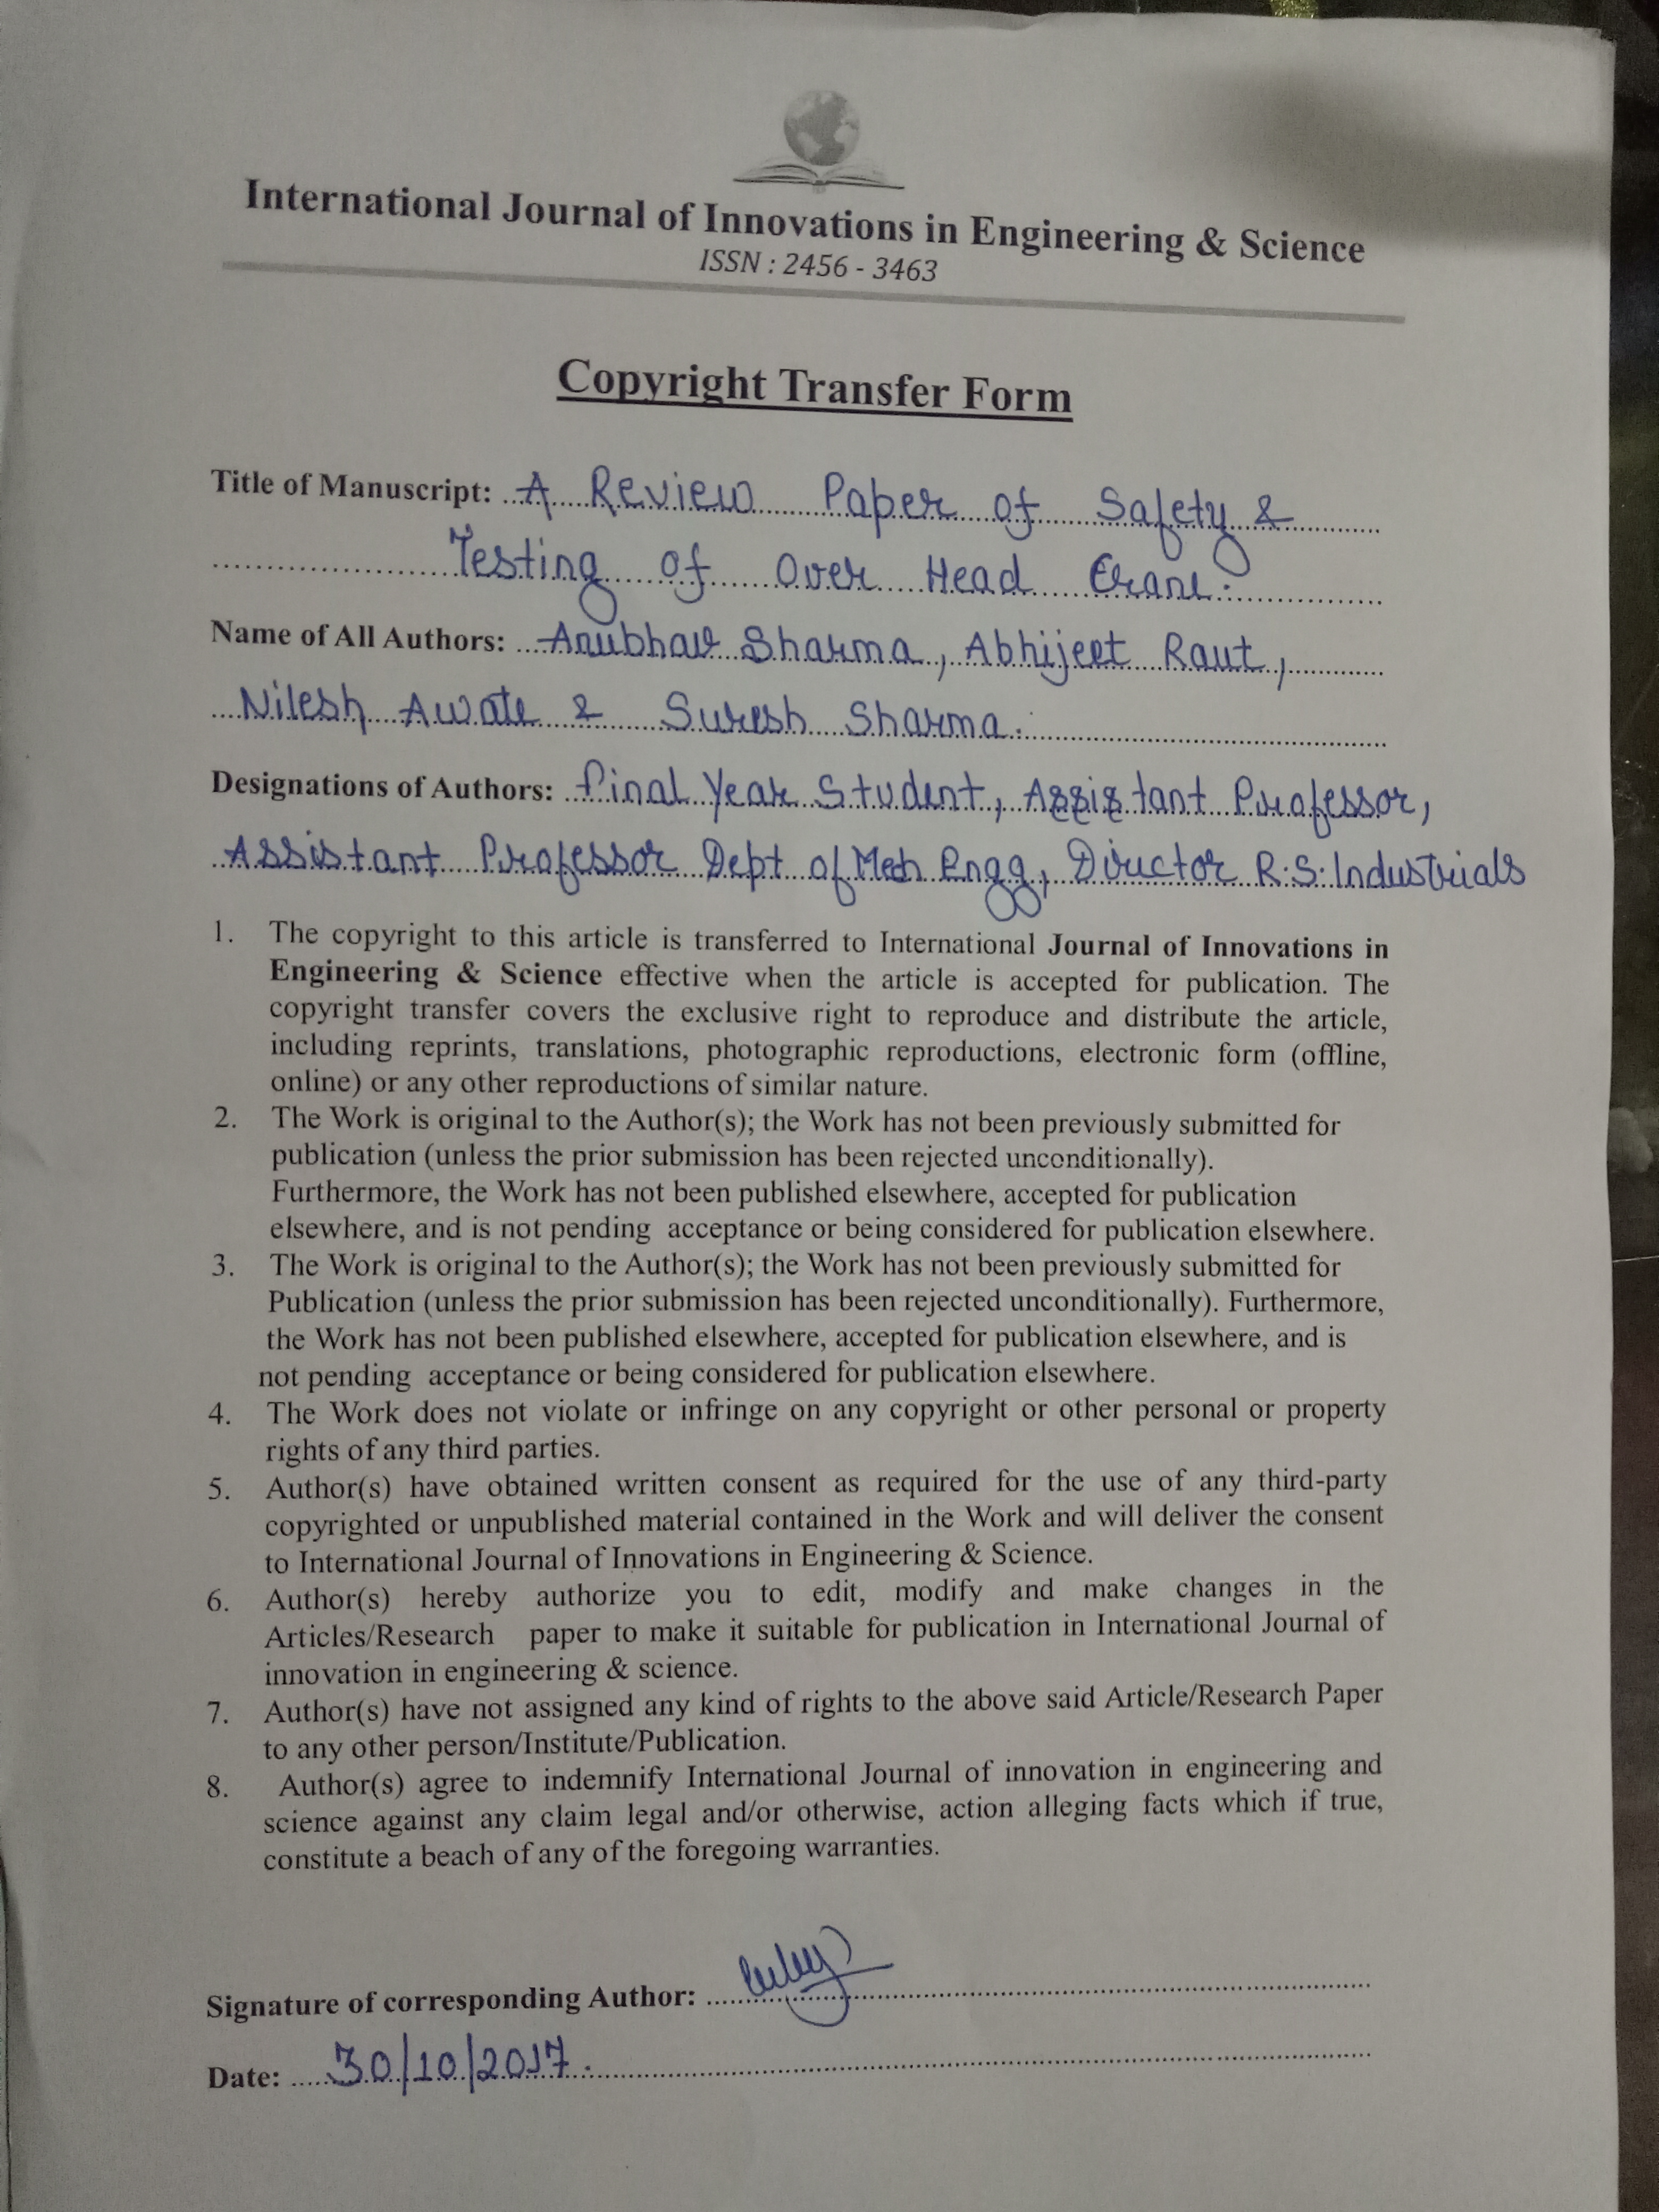 International Journal of Innovations in Engineering & Science
ISSN : 2456 - 3463
Copyright Transfer Form
Title of Manuscript: A Review Paper of Safety &
Testing of Over Head Crane.
Name of All Authors: Anubhav Sharma, Abhijeet Raut,
Nilesh Awate & Suresh Sharma.
Designations of Authors: Final Year Student, Assistant Professor,
Assistant Professor Dept of Mech Engg, Director R.S. Industrials
1. The copyright to this article is transferred to International Journal of Innovations in
Engineering & Science effective when the article is accepted for publication. The
copyright transfer covers the exclusive right to reproduce and distribute the article,
including reprints, translations, photographic reproductions, electronic form (offline,
online) or any other reproductions of similar nature.
2. The Work is original to the Author(s); the Work has not been previously submitted for
publication (unless the prior submission has been rejected unconditionally).
Furthermore, the Work has not been published elsewhere, accepted for publication
elsewhere, and is not pending acceptance or being considered for publication elsewhere.
3. The Work is original to the Author(s); the Work has not been previously submitted for
Publication (unless the prior submission has been rejected unconditionally). Furthermore,
the Work has not been published elsewhere, accepted for publication elsewhere, and is
not pending acceptance or being considered for publication elsewhere.
4. The Work does not violate or infringe on any copyright or other personal or property
rights of any third parties.
5. Author(s) have obtained written consent as required for the use of any third-party
copyrighted or unpublished material contained in the Work and will deliver the consent
to International Journal of Innovations in Engineering & Science.
6. Author(s) hereby authorize you to edit, modify and make changes in the
Articles/Research paper to make it suitable for publication in International Journal of
innovation in engineering & science.
7. Author(s) have not assigned any kind of rights to the above said Article/Research Paper
to any other person/Institute/Publication.
8. Author(s) agree to indemnify International Journal of innovation in engineering and
science against any claim legal and/or otherwise, action alleging facts which if true,
constitute a beach of any of the foregoing warranties.
Signature of corresponding Author:
Date: 30/10/2017.